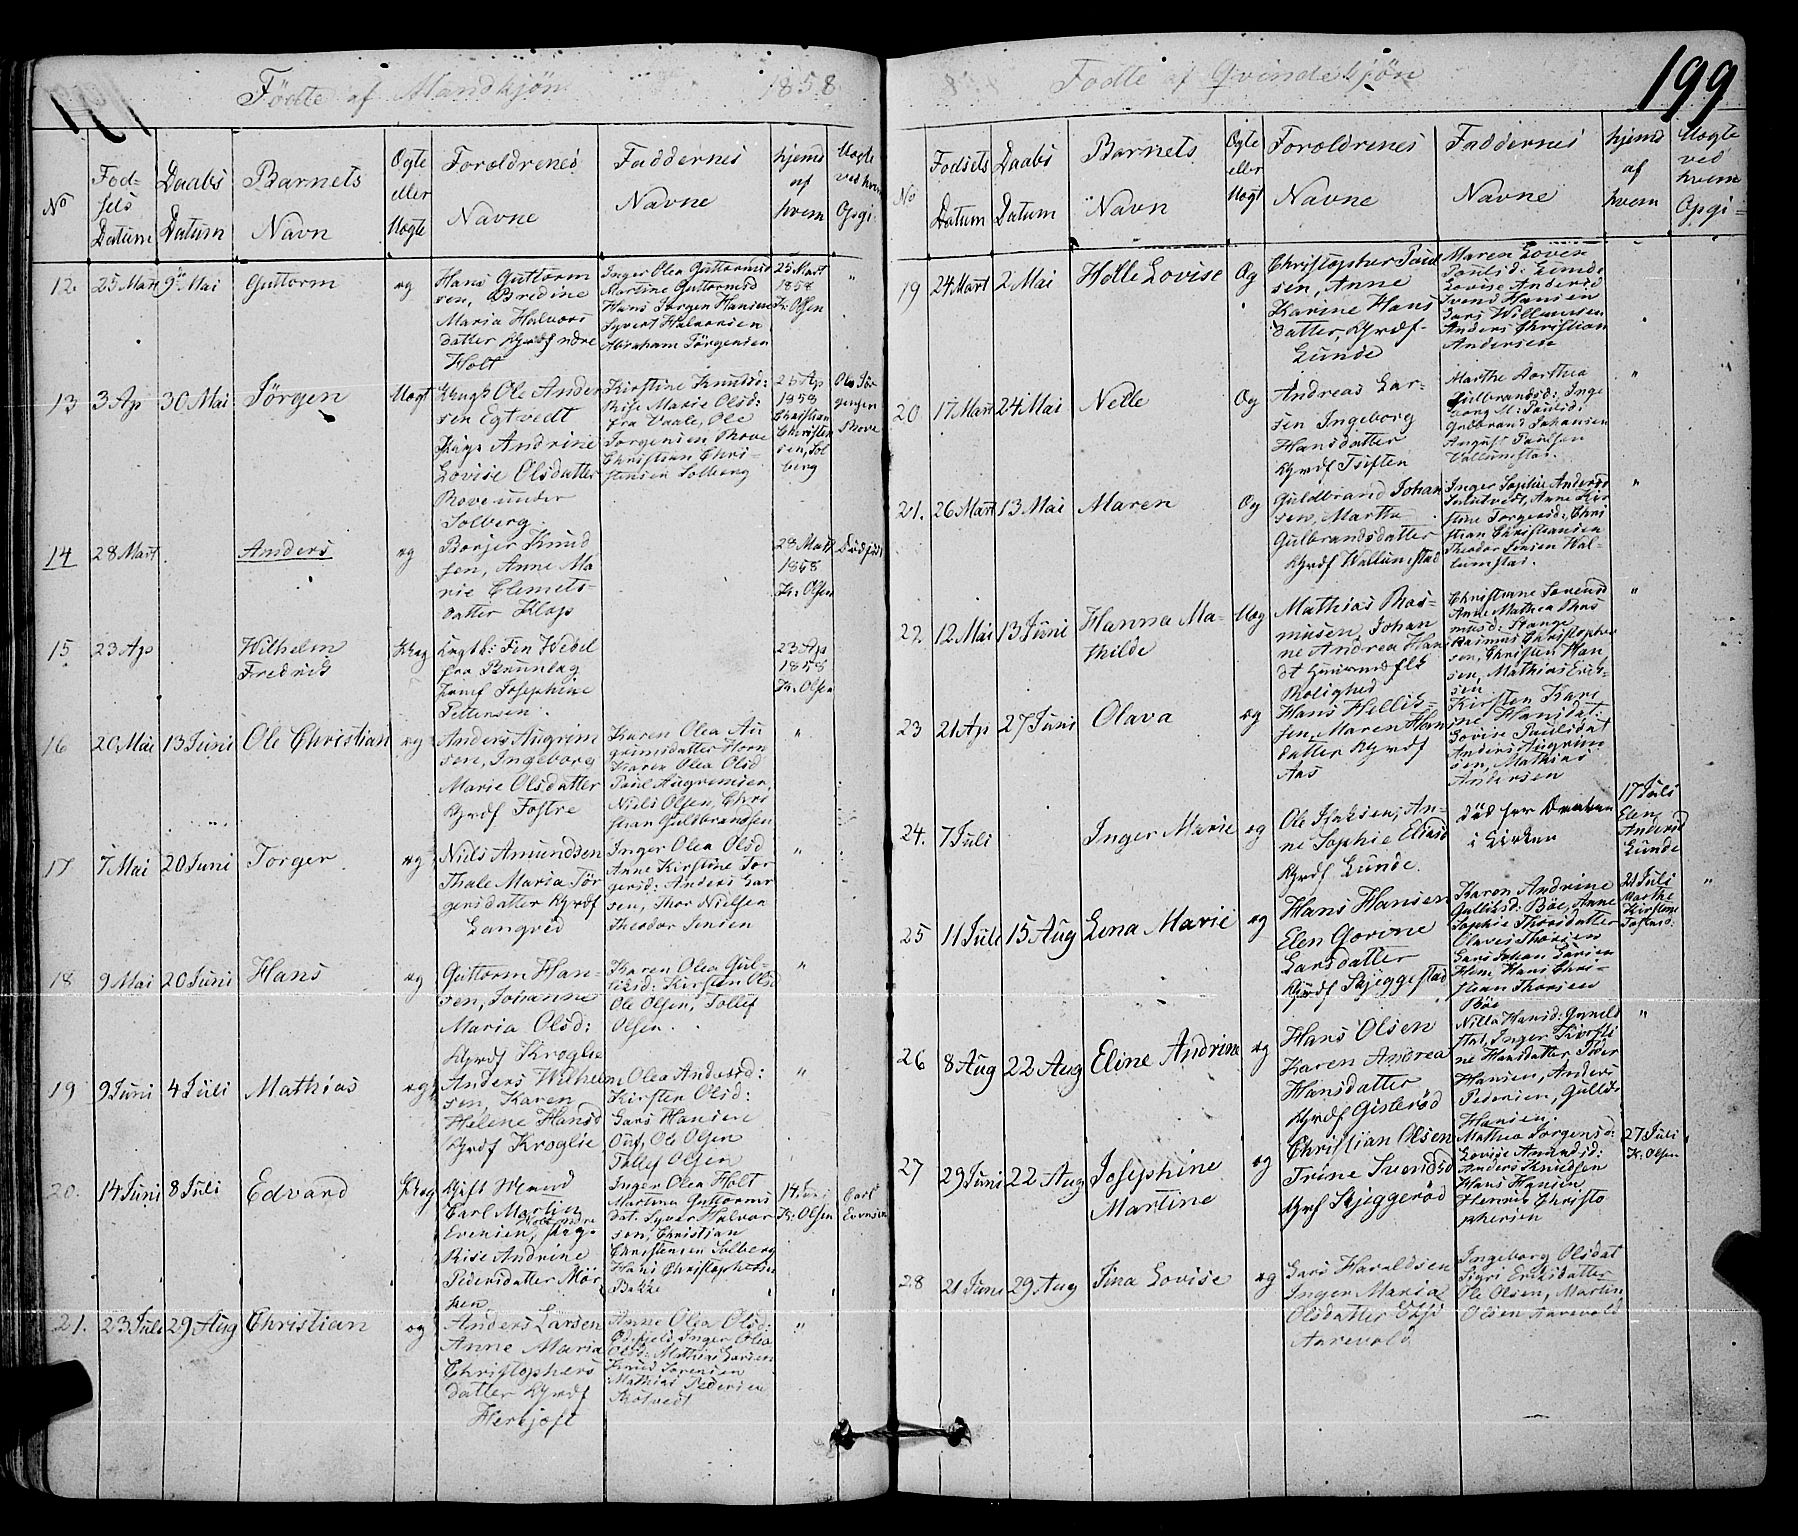 Fødte af Mandkjøn 1858
No
Fød-
sels
Datum
Daabs
Datum
Barnets
Navn
Ægte
eller
Uægte
Foræeldrenes
Navne
Faddernes
Navne
hjemd
af
hvem
Uægte
ved hvem
Opgi.
12. 25 Mart 9de Mai Guttorm æg
Hans Guttorm
sen, Bredine
Maria Halvors
datter Grdf nære
Holt
Inger Olea Guttormsd
Martine Guttormsd
Hans Jørgen Hansen
Syvert Halvorsen
Abraham Jørgensen
25 Mart
1858
Kr: Olsen
"
13 3 Ap 30 Mai Jørgen Uægt
Ole Ander
sen Egtvedt
Pige Andrine
Lovise Olsdatter
Rove under
Solberg
Kirstine Knudsd:
Rise Marie Olsd:
fra Vaale, Ole
Jørgensen Rove
Christian Chri-
stensen Solberg
25 Ap
1858
Christian
Christen
sen, Sol
berg
Ole Jør
gensen
Rove
14 28 Mart Anders æg
Borjer Knud
sen, Anne Ma
rie Clemets-
datter Klop
28 Mart
1858
Kr: Olsen
Dødfødt
15 23 Ap Wilhelm
Fredrik
Fin Wedel
fra Brunlag
Josephine
Pettersen.
23 Ap
1858
Kr: Olsen
16 20 Mai 13 Juni Ole Christian æg
Anders Augrim
sen, Ingeborg
Marie Olsdatter
Grdf Fostre
Karen Olea Au
grimsdatter Horn
Karen Olea Olsd
Paul Augremsen,
Niels Olsen, Chri
stian Guldbrandsen
"
17 7 Mai 20 Juni Torger æg
Niels Amundsen
Thale Maria Tor
gersdatter Grdf
Langrød
Inger Olea Olsd
Anne Kirstine Tor
gersd: Anders Lar
sen, Thor Nielsen
Theodor Jensen
"
18 9 Mai 20 Juni Hans æg
Guttorm Han-
sen, Johanne
Maria Olsd:
Grdf Kroglie
Karen Olea Gul-
liksd: Kirsten Olsd
Ole Olsen, Tollef
Olsen.
"
19 9 Juni 4 Juli Mathias æg
Anders Wilhelm
sen, Karen
Helene Hansd
Grdf Kroglie
Olea Andersd:
Kirsten Olsd:
Lars Hansen
Ole Olsen
Tollef Olsen
"
20. 14 Juni 8 Juli Edvard
Gift Mand
Carl Martin
Evensen, Pige
Rise Andrine
Pedersdatter Mør
ken
Inger Olea Holt
Martina Guttorms
dat. Syver Halvor
sen, Christian
Christensen Solberg
Hans Christophersen
Bakke
14 Juni
Kr: Olsen
Carl
Evensen
21. 23 Juli 29 Aug Christian æg
Anders Larsen
Anne Maria
Christophers
datter Grdf
Herkjøst
Anne Olea Olsd:
Inger Olea
Olsd: Mathias Larsen
Knud Sørensen
Mathias Pedersen
Skotvedt
"
Fødte af Qvindekjøn 199
No
Fødsels
Datum
Daabs
Datum
Barnets
Navn
Ægte
eller
Uægt
Forældrenes
Navne
Faddernes
Navne
hjemd
af
hvem
Uægte
ved
hvem
Opgi-
19 24 Mart 2 Mai Helle Lovise Æg
Christopher Paul
sen, Anne
Karine Hans
datter, Grdf-
Lunde
Maren Loven
Paulsd: Lunde
Lovise Andersd
Svend Hansen
Lars Willumsen
Anders Christian
Andersen
"
20 17 Mart 24 Mai Nelle Æg
Andreas Lar-
sen Ingeborg
Hansdatter
Grdf Tuften
Marthe Dorthea
Gulbrandsd: Inge
borg M: Paulsd:
Guldbrand Johansen
August Paulsen
Vallumstad.
"
21. 26 Mart 13 Mai Maren Æg
Guldbrand Johan
sen, Marthe
Gulbrandsdatter
Grdf Wallumstad
Inger Sophie Andersd
Anne Kir
stine Torgersd: Chri
stian Christiansen
Theodor Jensen Wal-
lumstad.
"
22. 12 Mai 13 Juni Hanna Ma-
thilde Uæg
Mathias Ras-
musen, Johan
ne Andrea Han
dt
Rolighed
Christiane Sørensd
Anne Mathea Ras
musd: Stange
Rasmus Christopher
sen, Christen Han
sen, Mathias Erik-
sen
"
23 21 Ap 27 Juni Olava æg
Hans Hellis-
sen, Maren Han
datter Grdf
Aas
Kirsten Kare
ne Hansdat.
Lovise Paulsdat
Anders Augrim
sen, Mathias
Andersen
24. 7 Juli Inger Marie æg
Ole Isaksen, An-
ne Sophie Eliasd
Grdf Lunde.
død før Daaben
i Kirken
17 Juli
Elen
Andersd
Lunde
25 11 Juli 15 Aug Lena Marie æg
Hans Hansen
Elen Gorine
Larsdatter
Grdf Skjeggestad
Karen Andrine
Gulliksd: Bøe, Anne
Sophie Thorsdatter
Olaves Thorsen
Lars Johan Larsen
Hem, Hans Chri-
stian Thorsen
Bøe
21 Juli
Marthe
Kirstine
"
26 8 Aug 22 Aug Eline Andrine æg
Hans Olsen
Karen Andrea
Hansdatter
Grdf Gisterød
Nilla Hansd:
Inger Kirsti
ne Hansdatter Peder
Hansen, Anders
Pedersen, Gullik
Hansen.
"
27 29 Juni 22 Aug Josephine
Martine æg
Christian Olsen
Trine Svendsd
Grdf Skjeggerød
Mathea Jørgensd:
Lovise Amundsd:
Anders Knudsen
Hans Hansen
Henrik Christo
phersen
27 Juli
Kr: Olsen
28 21 Juni 29 Aug Tina Lovise æg
Lars Haraldsen
Inger Maria
Olsdatter
Aarevold
Ingeborg Olsdat
Sigri Eriksdatter
Ole Olsen, Martin
Olsen Aarevold